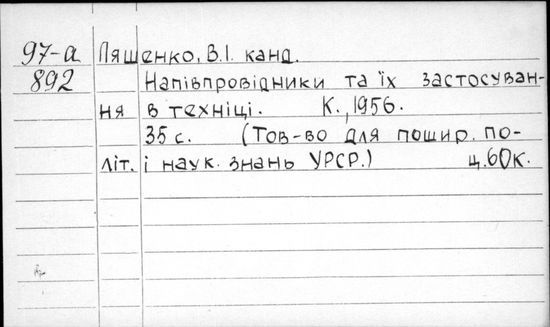 97-а Ляшенко, В.І. канд.
892 Напівпровідники та їх застосуван-
ня в техніці. К., 1956.
35 с. (Тов-во для пошир. по-
літ. і наук. знань УРСР.) ц. 60к.